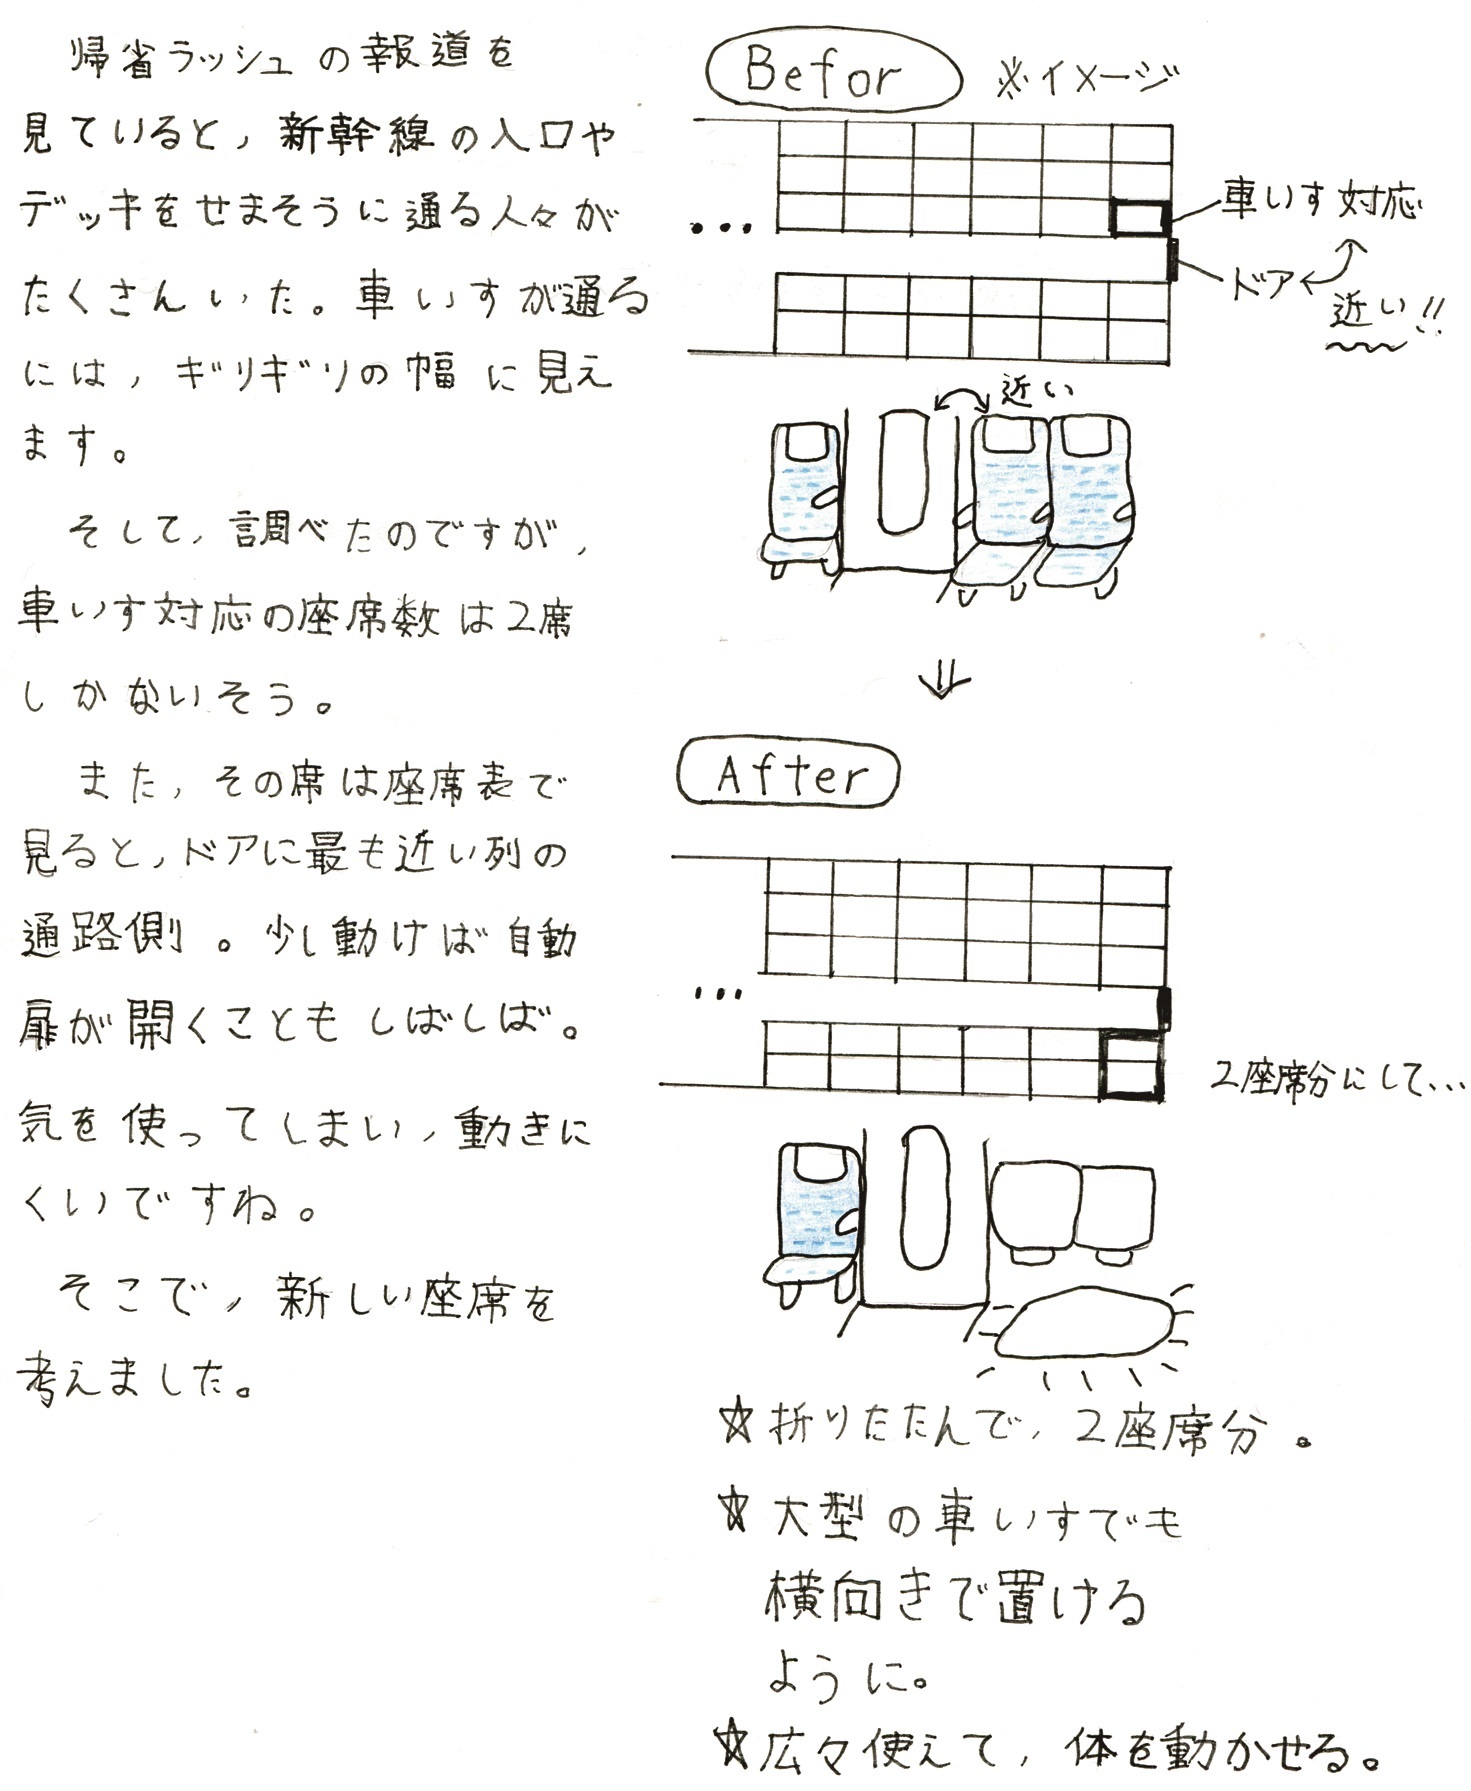 帰省ラッシュの報道を
見ていると,新幹線の入口や
デッキをせまそうに通る人々が
たくさんいた。車いすが通る
には,ギリギリの幅に見え
ます。
そして,調べたのですが,
車いす対応の座席数は2席
しかないそう。
また,その席は座席表で
見ると,ドアに最も近い列の
通路側。少し動けば自動
扉が開くこともしばしば。
気を使ってしまい,動きに
くいですね。
そこで,新しい座席を
考えました。
Befor ※イメージ
車いす対応
ドア
近い!!
近い
After
2座席分にして...
☆折りたたんで,2座席分。
☆大型の車いすでも
横向きで置ける
ように。
☆広々使えて,体を動かせる。